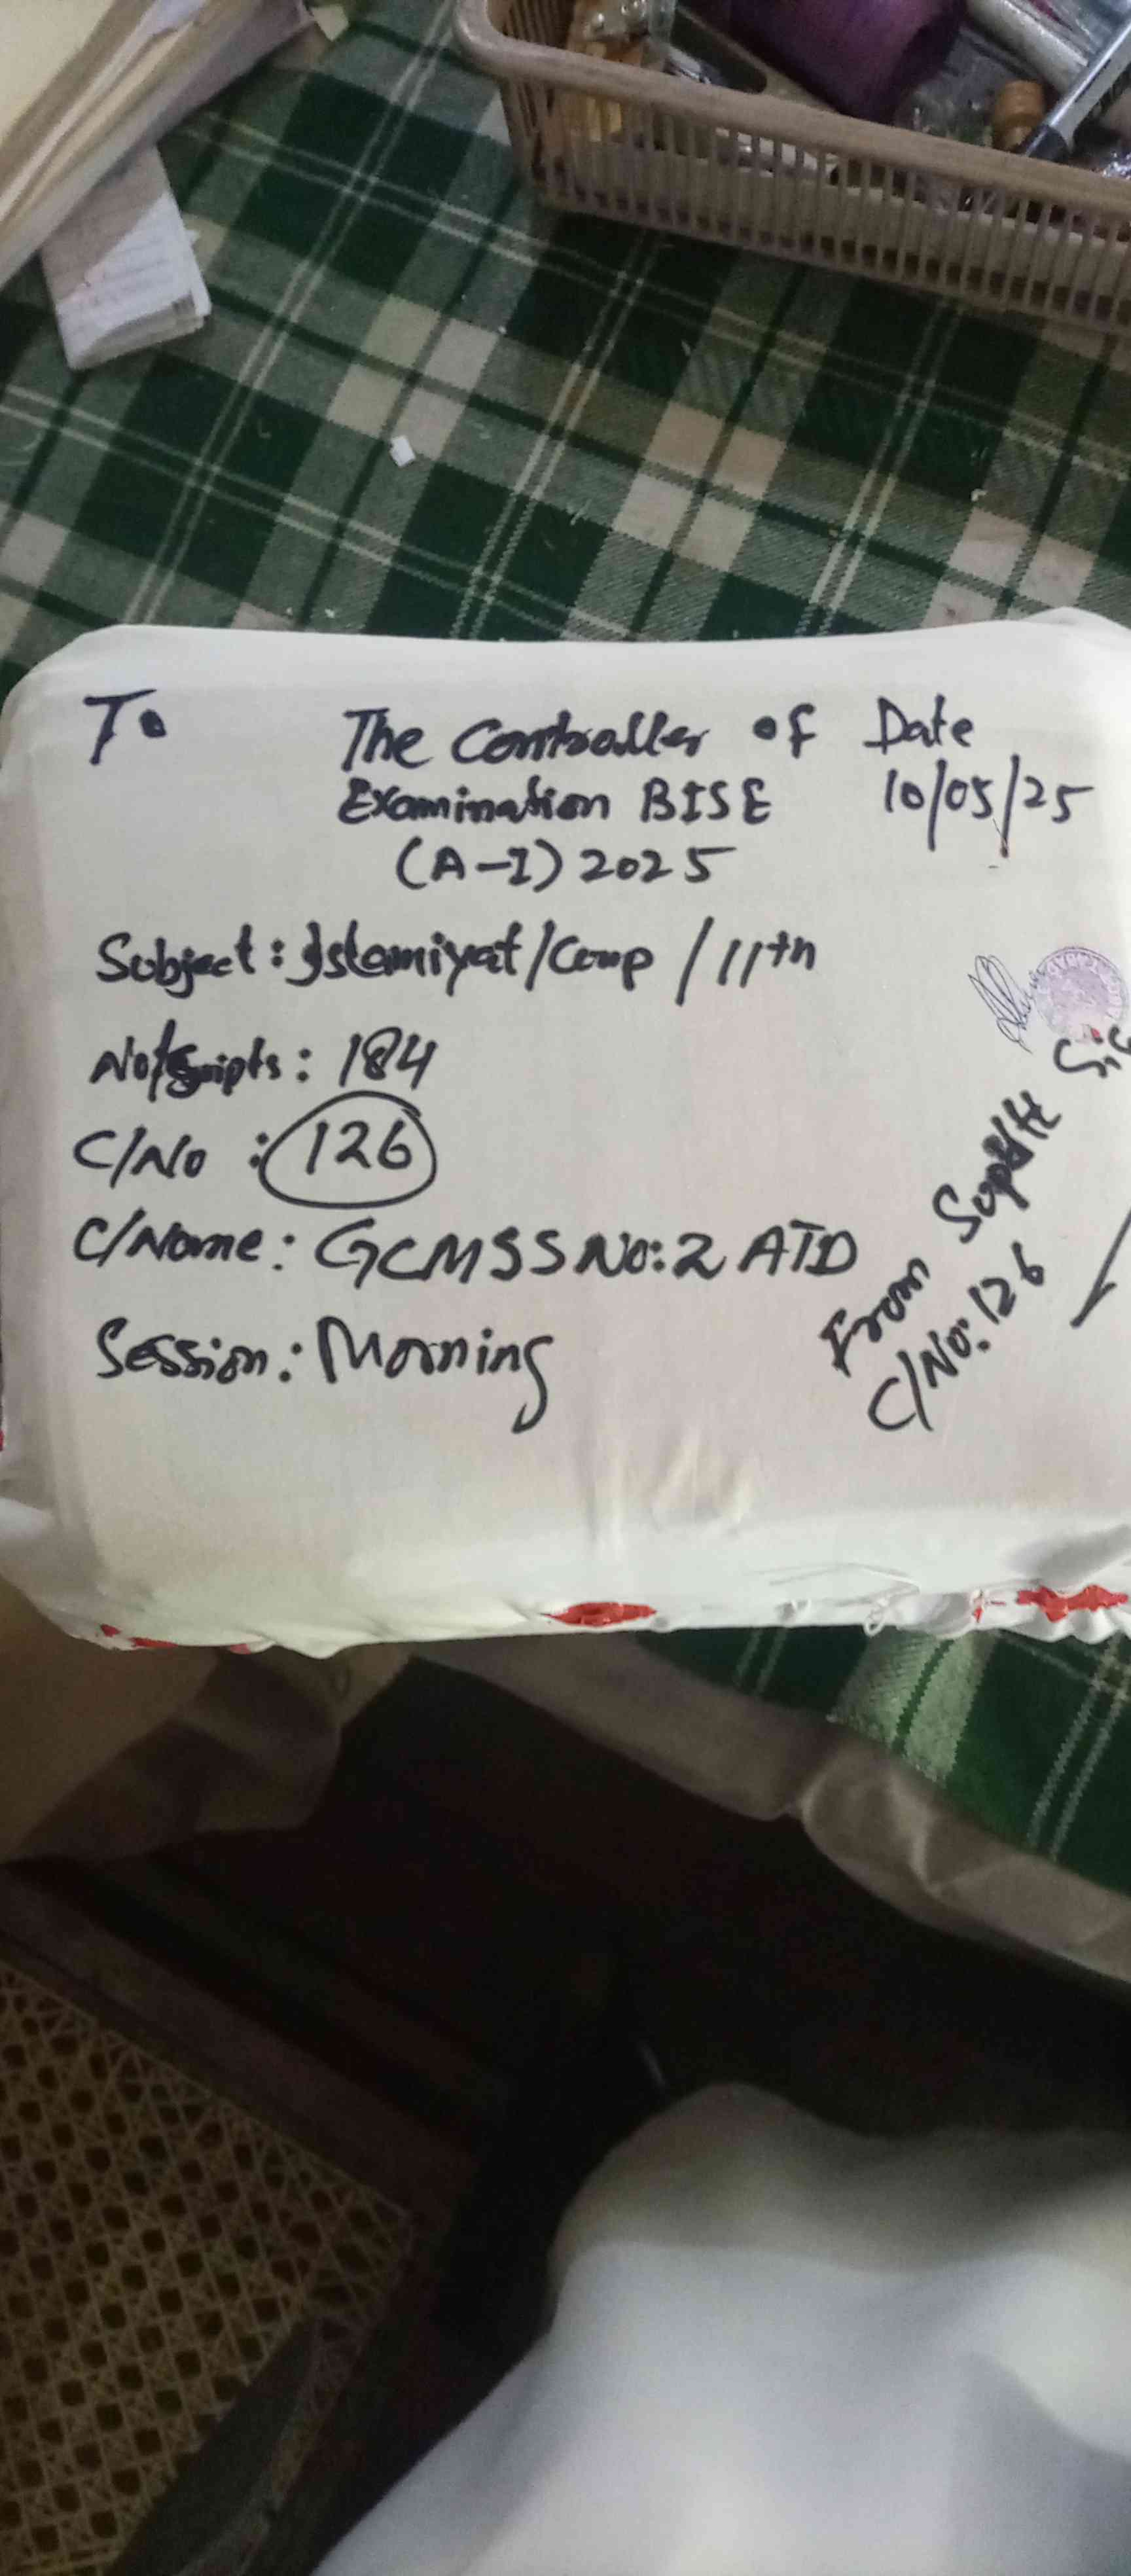 To
The Controller of
Examination BISE
(A-I) 2025
Date
10/05/25
Subject: Islamiyat/Comp / 11th
No/Scripts: 184
C/No : 126
C/Name: GCMSS No:2 ATD
Session: Morning
From Supdtt
C/No: 126